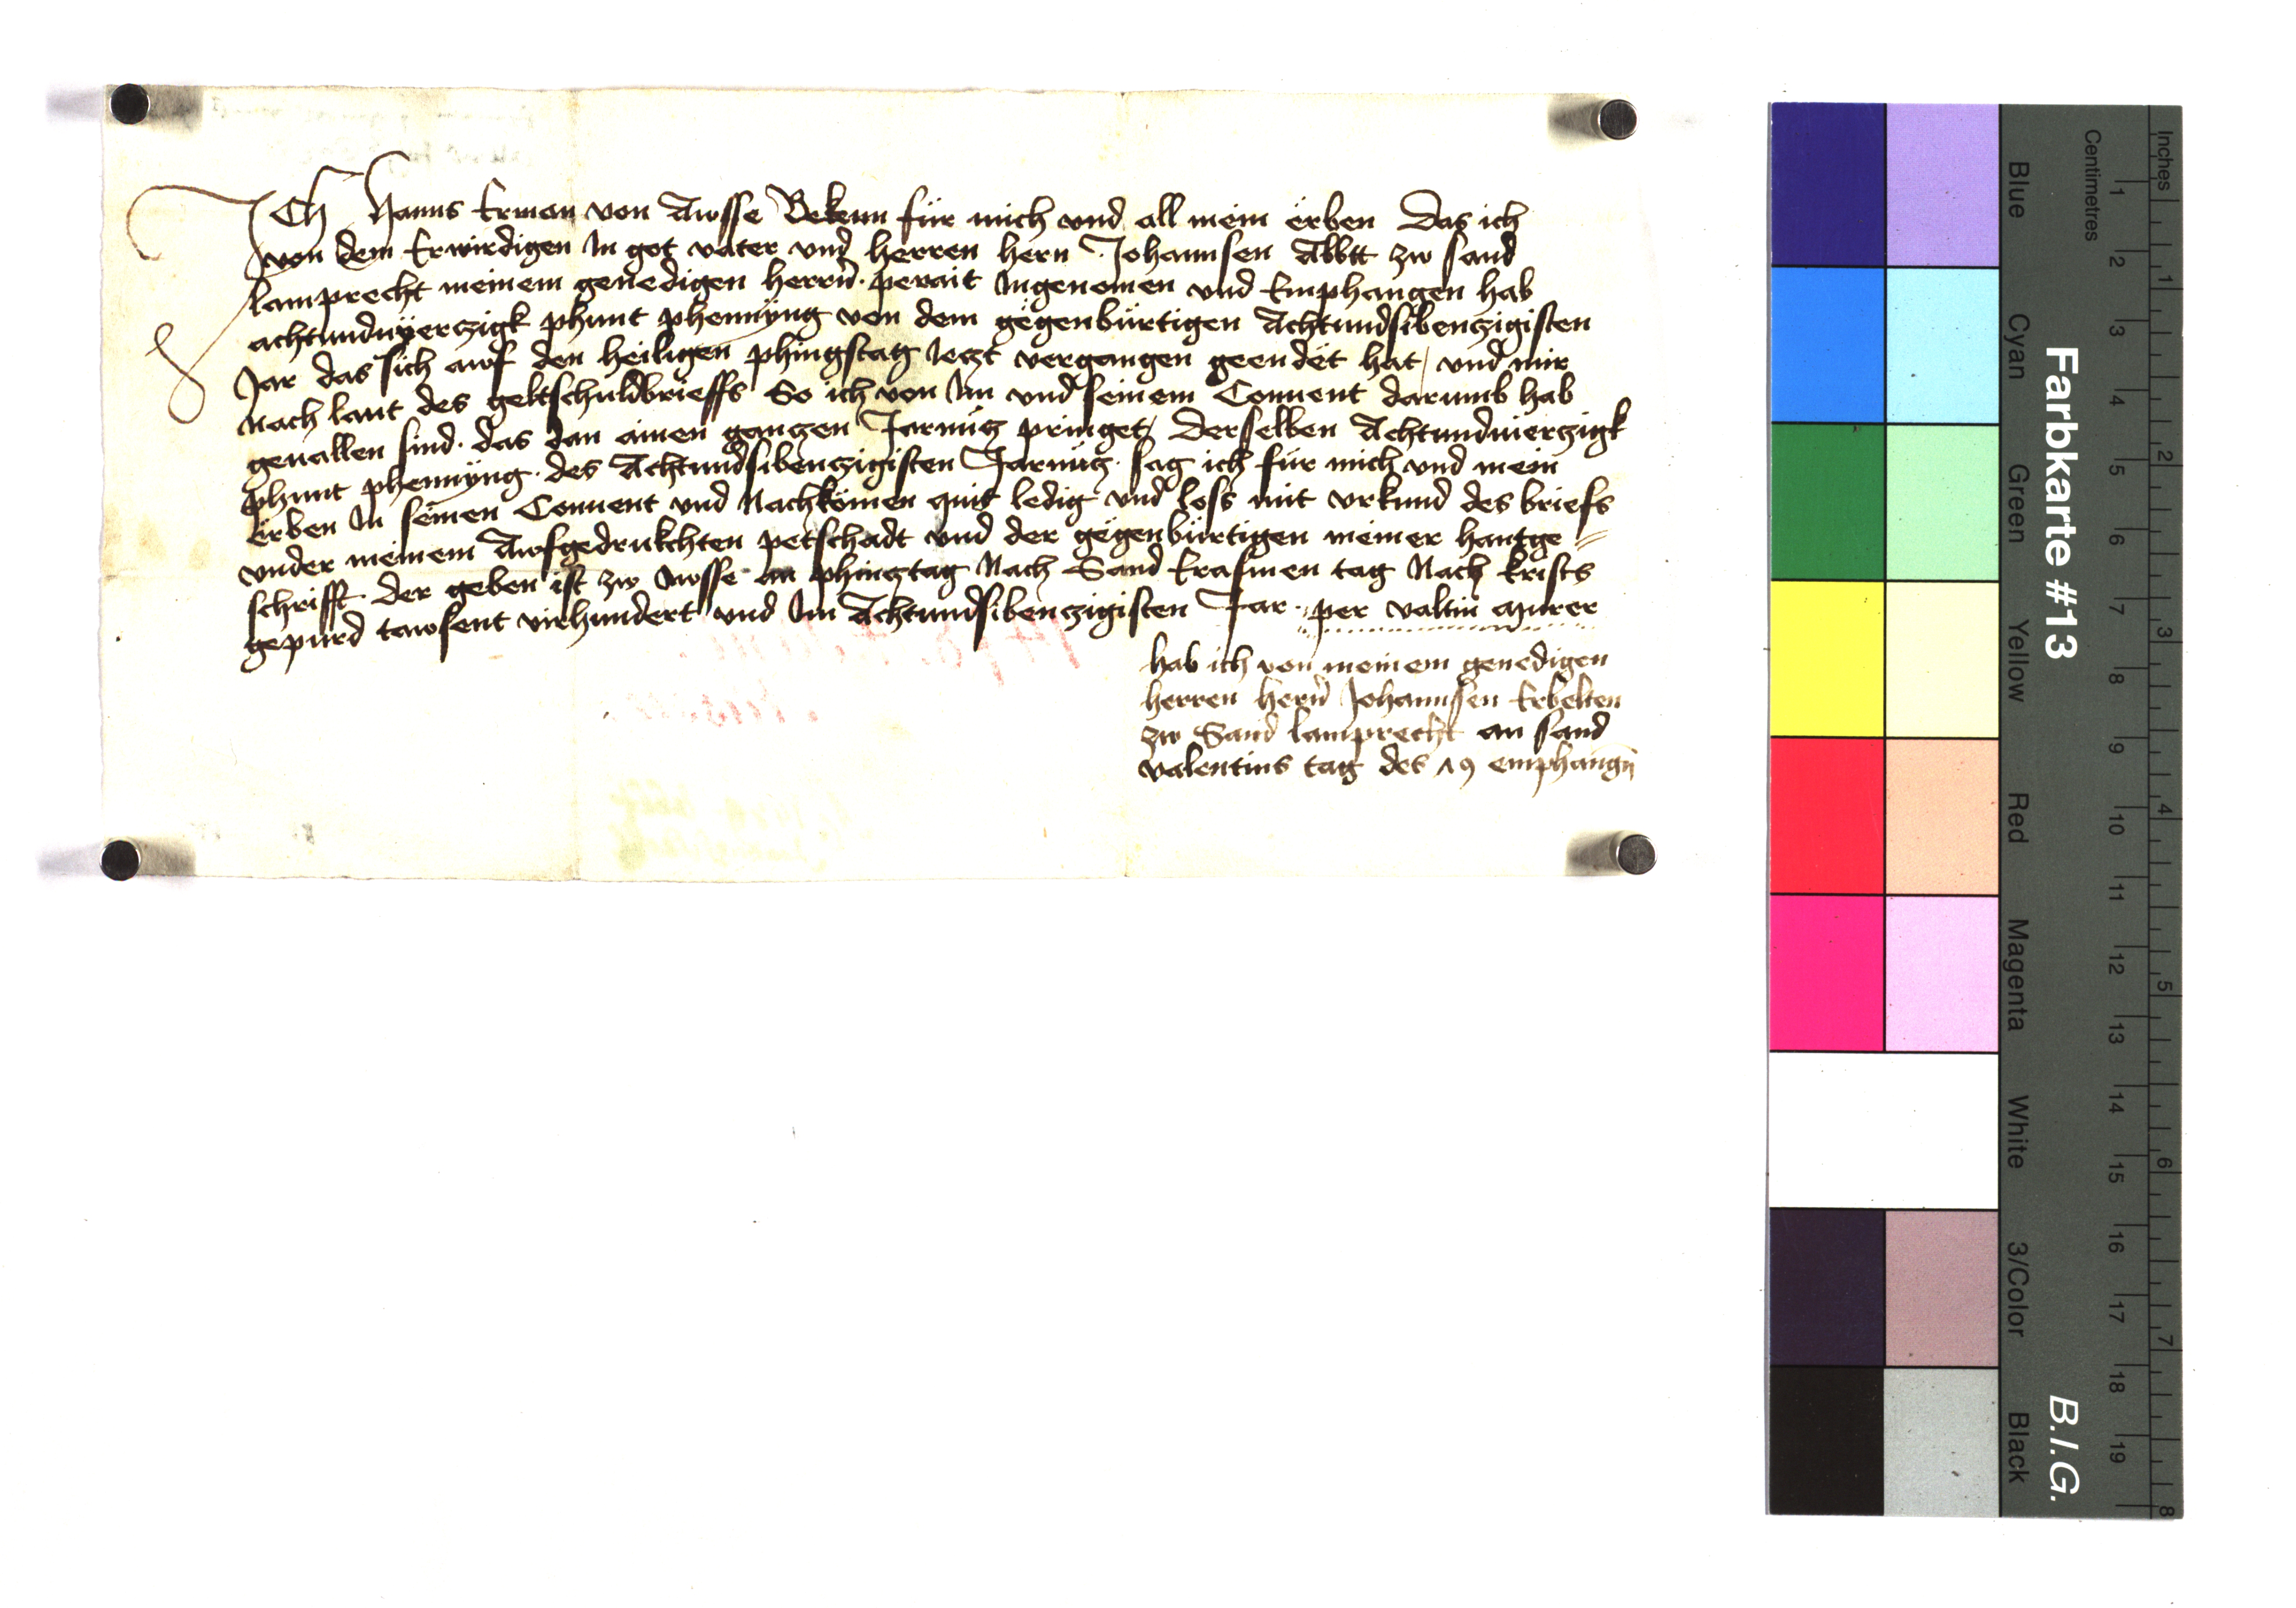 Ich Hanns Erman von Awsse Bekenn für mich vnd all mein erben Das ich
von dem Erwirdigen In got vater vnd herren hern Johannsen Abbtt zw sand
lamprecht meinem genedigen herrn perait Ingenomen vnd Emphangen hab
achtundvyerczigk phunt phennyng von dem gegenbürtigen Achtundsibenczigisten
Jar das sich awf den heiligen phingstag Ieczt vergangen geendet hat / vnd mir
Nach laut des geltschuldbrieffs So ich von Im vnd seinem Conuent darumb hab
geuallen sind . das dan ainen ganczen Jarnücz pringet / Derselben Achtundvierczigk
phunt phennyng . des Achtundsibenczigisten Jarnücz . sag ich für mich vnd mein
erben In seinen Conuent vnd Nachkömen quit ledig vnd loss mit vrkund des briefs
vnder meinem Awfgedrukchten petschadt vnd der gegenbürtigen meiner hantge=
schrifft . Der geben ist zw Awsse am phincztag Nach Sand Erasmen tag Nach Krists
gepurd tawsent virhundert vnd Im Achtundsibenczigisten Jar . per valtin
hab ich von meinem genedigen
herren hern Johannsen Erbelten
zw Sand lamprecht an sand
valentins tag des 79 emphangn
Farbkarte #13
B.I.G.
Inches 1 2 3 4 5 6 7 8
Centimetres 1 2 3 4 5 6 7 8 9 10 11 12 13 14 15 16 17 18 19
Blue Cyan Green Yellow Red Magenta White 3/Color Black